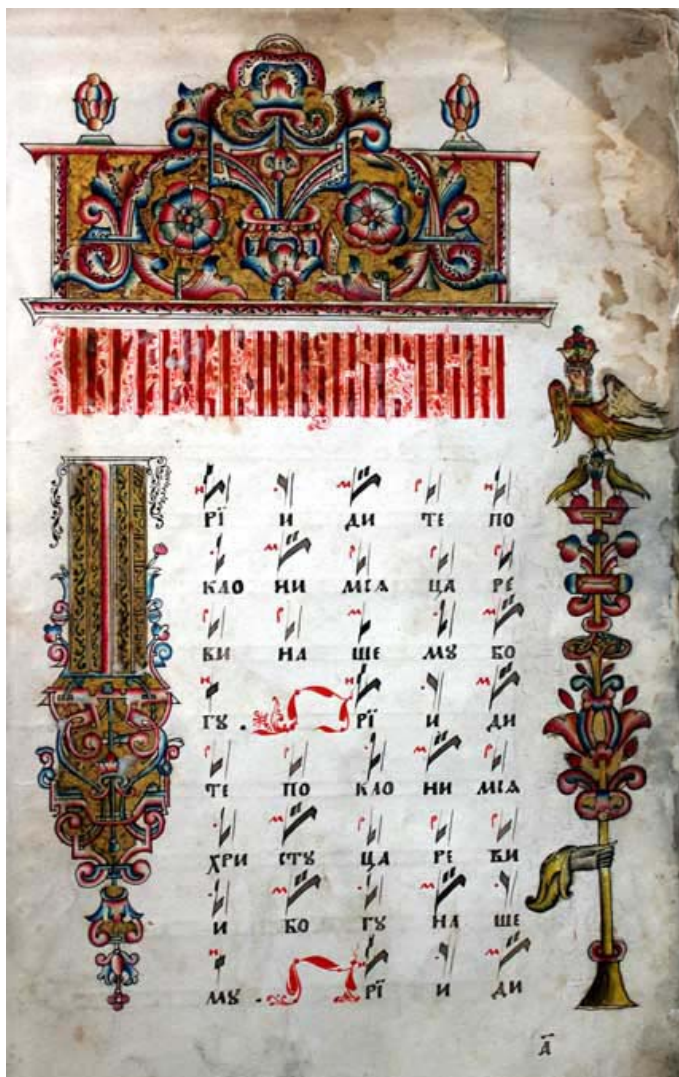 П РЇ И ДИ ТЕ ПО
КЛО НИ МСѦ ЦА РЕ
ВИ НА ШЕ МꙊ БО
ГꙊ . П РЇ И ДИ
ТЕ ПО КЛО НИ МСѦ
ХРИ СТꙊ ЦА РЕ ВИ
И БО ГꙊ НА ШЕ
МꙊ . П РЇ И ДИ
А҃